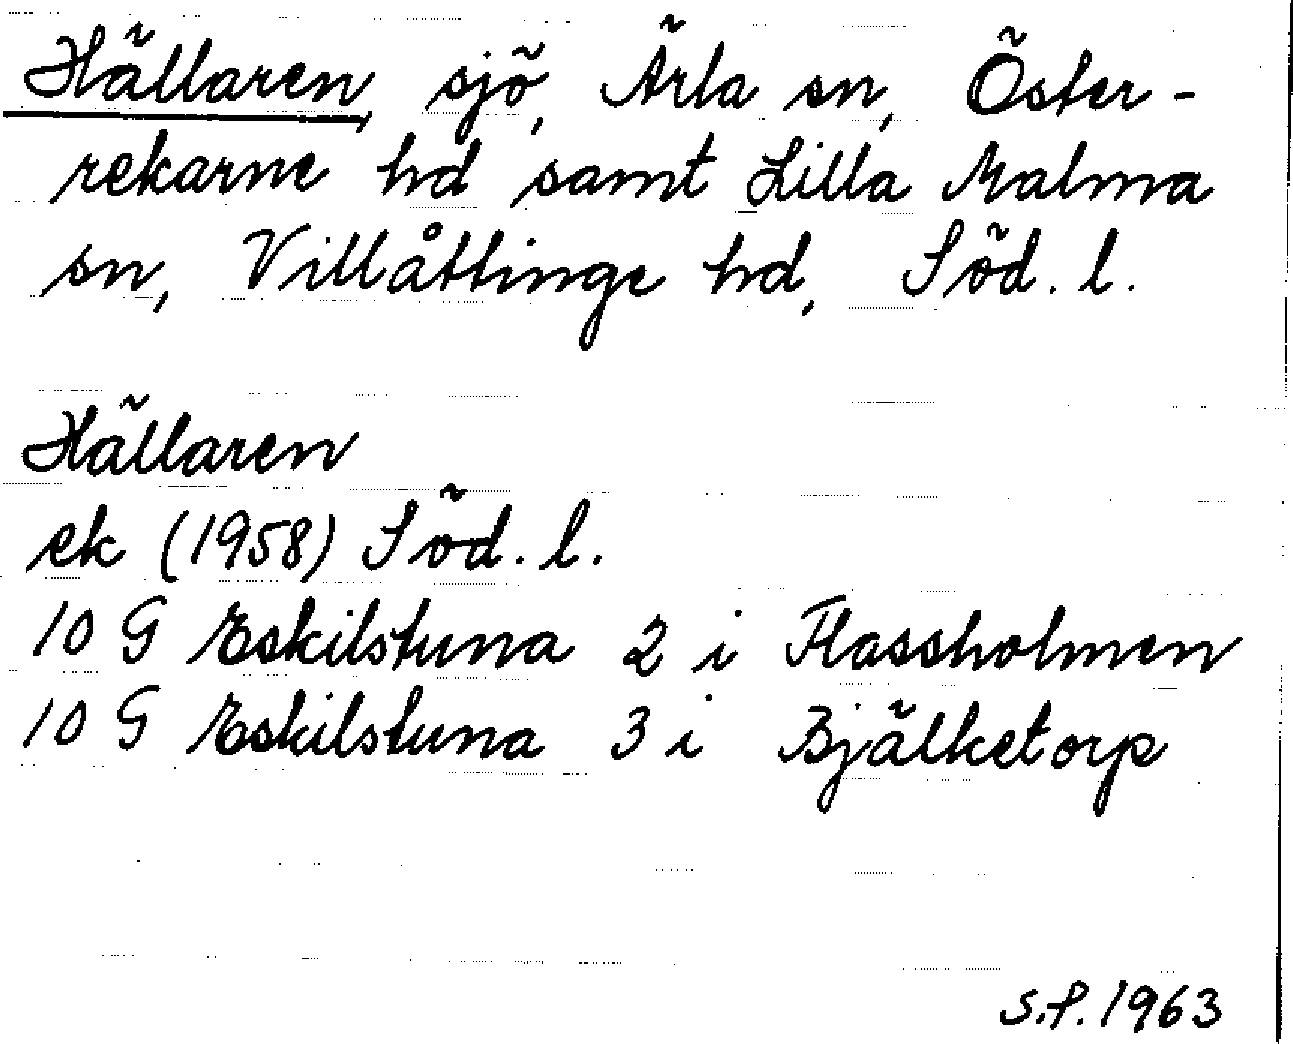 Hällaren, sjö, Ärla sn, Öster-
rekarne hd samt Lilla Malma
sn, Villåttinge hd, Söd. l.
Hällaren
ek (1958) Söd. l.
10 G Eskilstuna 2 i Flassholmen
10 G Eskilstuna 3 i Bjälketorp
S.P. 1963